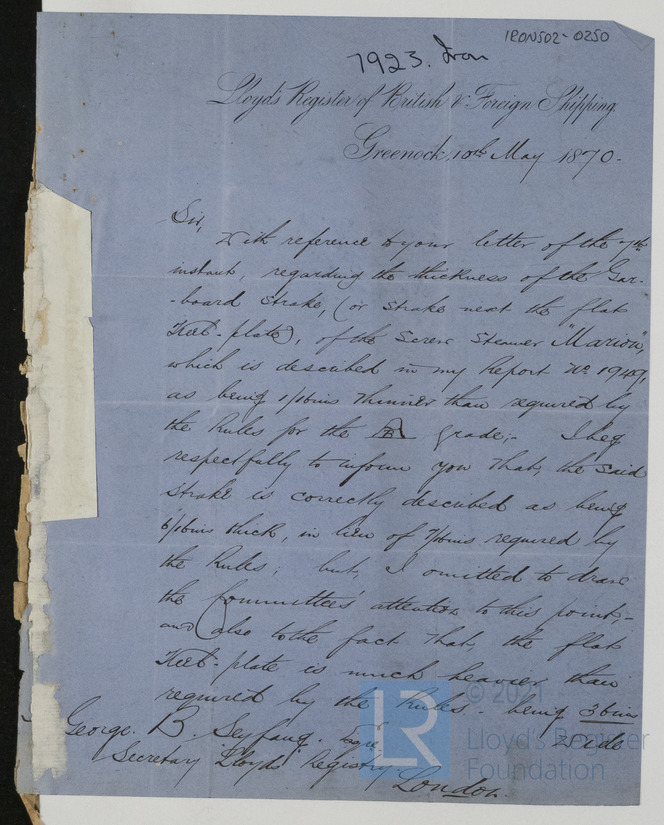 IRONS02-0250
7923. Iron
Lloyd's Register of British & Foreign Shipping
Greenock, 10th May 1870-
Sir,
With reference to your letter of the 7th
instant, regarding the thickness of the Gar-
-board Strake, (or Strake next the flat
Keel-plate), of the Screw Steamer "Marion",
which is described in my Report No 1949,
as being 1/16ins thinner than required by
the Rules for the A grade;- I beg
respectfully to inform you that, the said
Strake is correctly described as being
6/16ins thick, in lieu of 7/16ins required by
the Rules; but, I omitted to draw
the Committee's attention to this point;-
and also to the fact that, the flat
Keel-plate is much heavier than
required by the Rules- being 36ins
wide
George. B. Seyfang. Esqre
Secretary Lloyds Registry.
London.
LR
© 2021
Lloyd's Register
Foundation